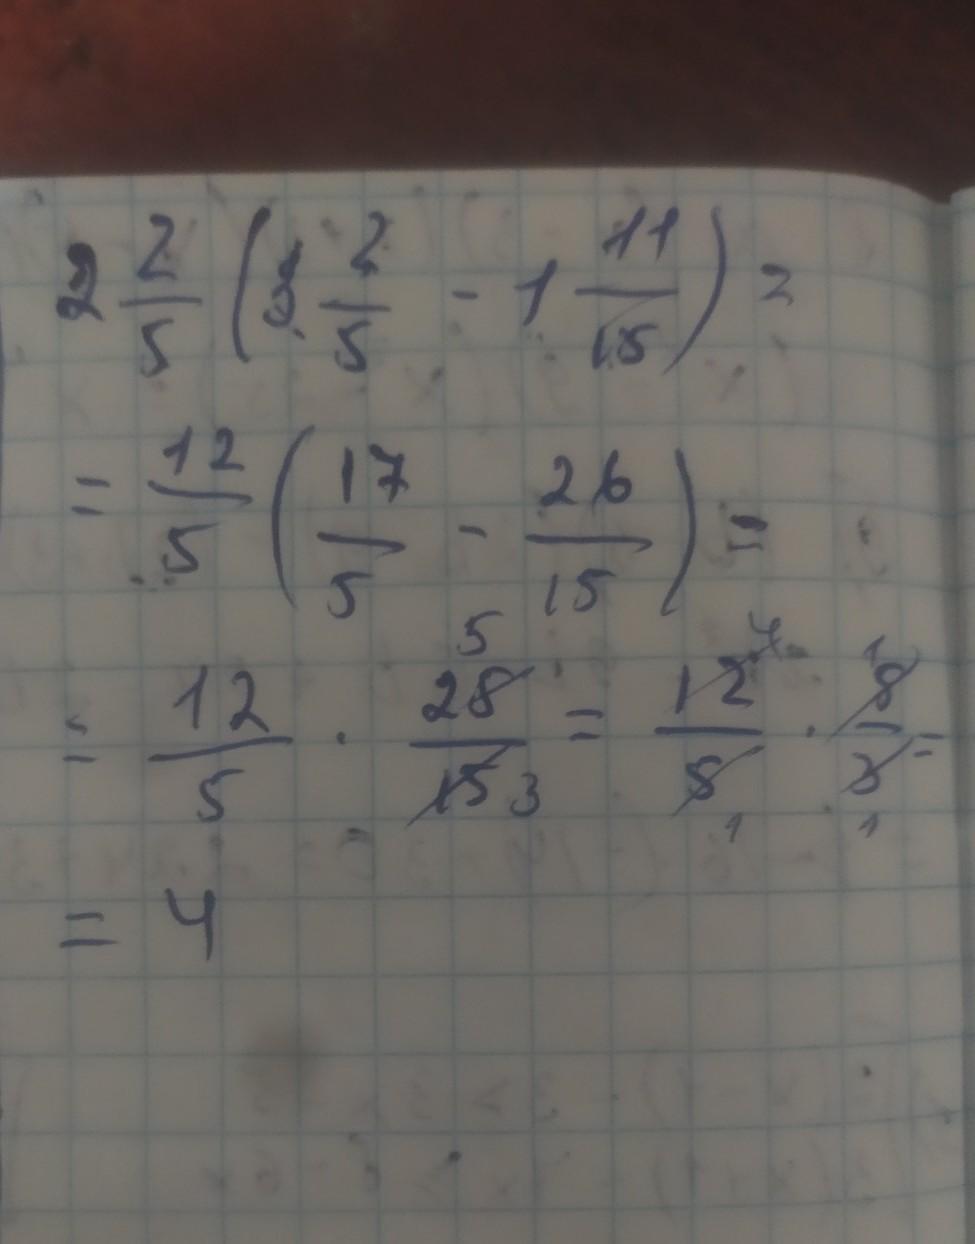 2 2/5 (3 2/5 - 1 11/15) =
= 12/5 (17/5 - 26/15) =
= 12/5 · 28/15 5 3 = 12/5 4 1 · 8/3 1 1 =
= 4